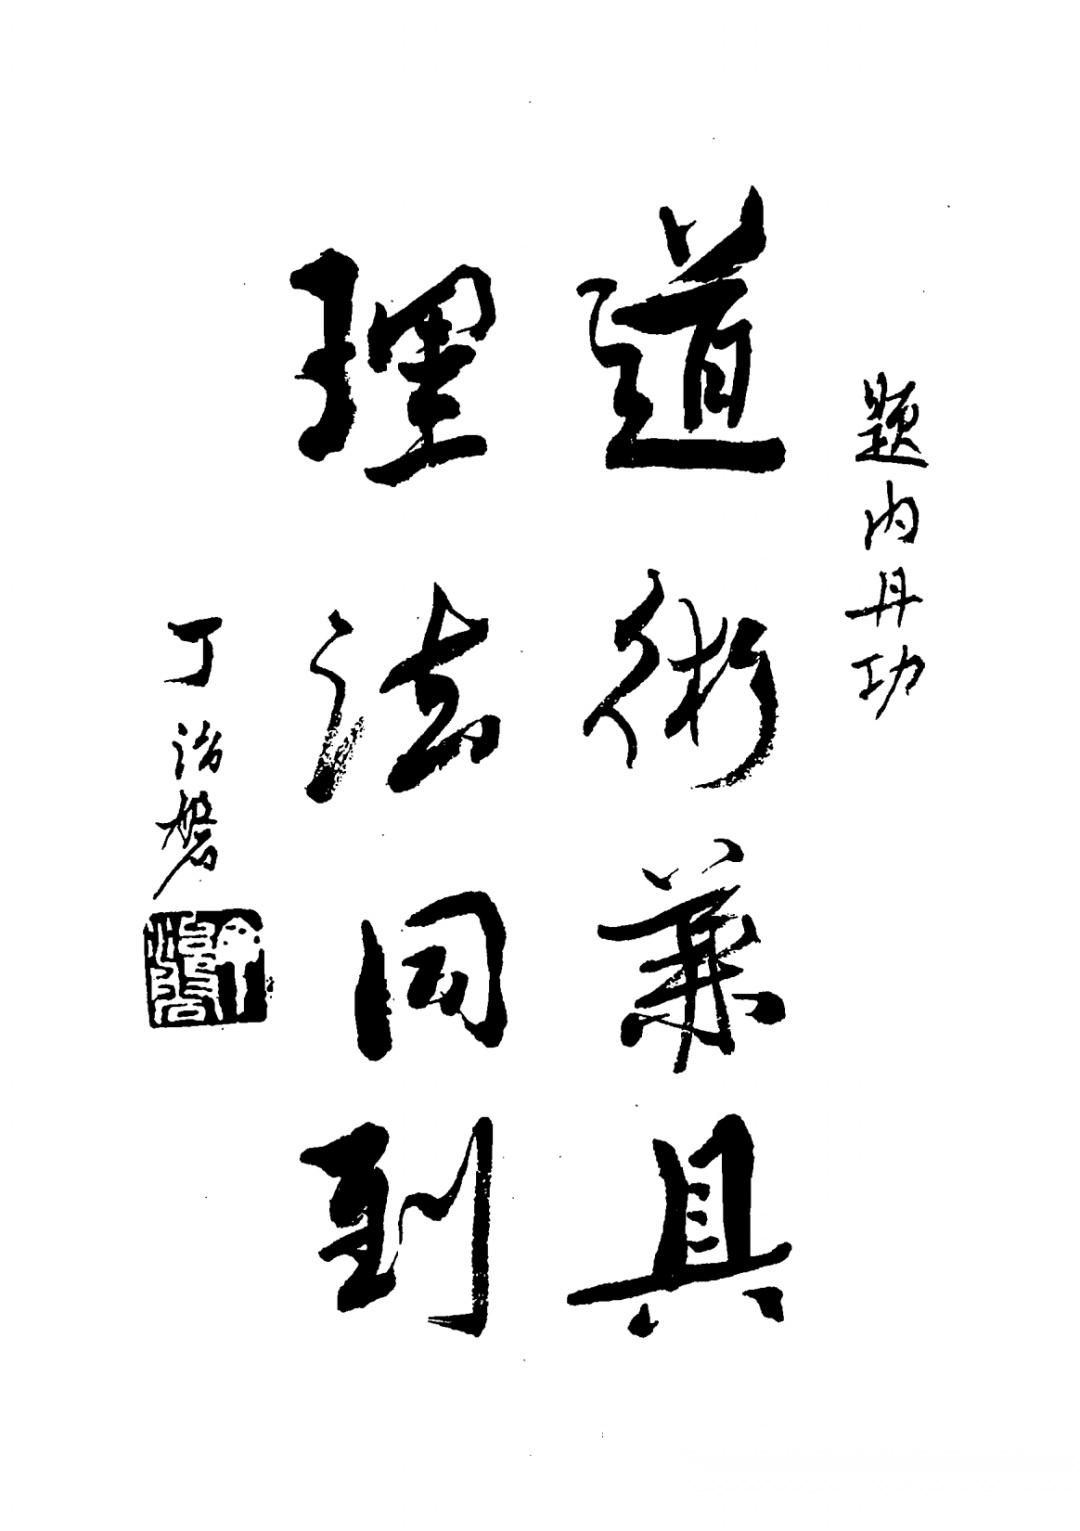 题内丹功
道術兼具
理法同到
丁治磐